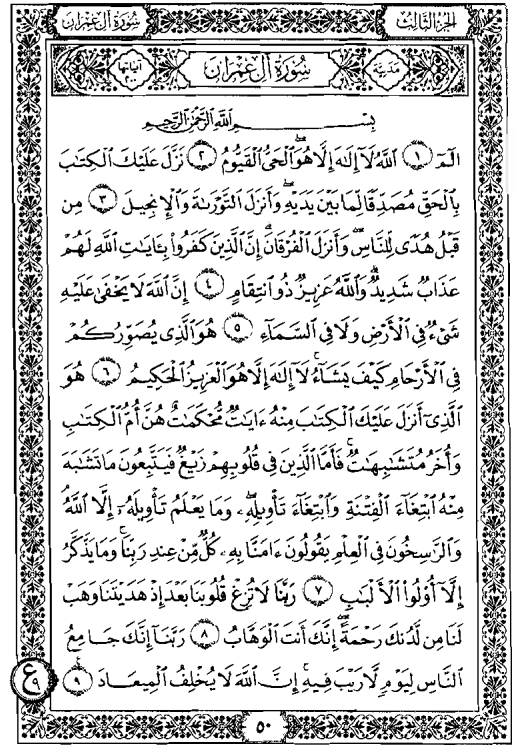 الجزء الثالث
سورة آل عمران
مدنية
سُورَةُ آلِ عِمْرَان
آياتها ٢٠٠
بِسْمِ اللَّهِ الرَّحْمَنِ الرَّحِيمِ
الٓمٓ ١ ٱللَّهُ لَآ إِلَٰهَ إِلَّا هُوَ ٱلْحَىُّ ٱلْقَيُّومُ ٢ نَزَّلَ عَلَيْكَ ٱلْكِتَٰبَ
بِٱلْحَقِّ مُصَدِّقًا لِّمَا بَيْنَ يَدَيْهِ وَأَنزَلَ ٱلتَّوْرَىٰةَ وَٱلْإِنجِيلَ ٣ مِن
قَبْلُ هُدًى لِّلنَّاسِ وَأَنزَلَ ٱلْفُرْقَانَ إِنَّ ٱلَّذِينَ كَفَرُوا۟ بِـَٔايَٰتِ ٱللَّهِ لَهُمْ
عَذَابٌ شَدِيدٌ وَٱللَّهُ عَزِيزٌ ذُو ٱنتِقَامٍ ٤ إِنَّ ٱللَّهَ لَا يَخْفَىٰ عَلَيْهِ
شَىْءٌ فِى ٱلْأَرْضِ وَلَا فِى ٱلسَّمَآءِ ٥ هُوَ ٱلَّذِى يُصَوِّرُكُمْ
فِى ٱلْأَرْحَامِ كَيْفَ يَشَآءُ لَآ إِلَٰهَ إِلَّا هُوَ ٱلْعَزِيزُ ٱلْحَكِيمُ ٦ هُوَ
ٱلَّذِىٓ أَنزَلَ عَلَيْكَ ٱلْكِتَٰبَ مِنْهُ ءَايَٰتٌ مُّحْكَمَٰتٌ هُنَّ أُمُّ ٱلْكِتَٰبِ
وَأُخَرُ مُتَشَٰبِهَٰتٌ فَأَمَّا ٱلَّذِينَ فِى قُلُوبِهِمْ زَيْغٌ فَيَتَّبِعُونَ مَا تَشَٰبَهَ
مِنْهُ ٱبْتِغَآءَ ٱلْفِتْنَةِ وَٱبْتِغَآءَ تَأْوِيلِهِۦ وَمَا يَعْلَمُ تَأْوِيلَهُۥٓ إِلَّا ٱللَّهُ
وَٱلرَّٰسِخُونَ فِى ٱلْعِلْمِ يَقُولُونَ ءَامَنَّا بِهِۦ كُلٌّ مِّنْ عِندِ رَبِّنَا وَمَا يَذَّكَّرُ
إِلَّآ أُو۟لُوا۟ ٱلْأَلْبَٰبِ ٧ رَبَّنَا لَا تُزِغْ قُلُوبَنَا بَعْدَ إِذْ هَدَيْتَنَا وَهَبْ
لَنَا مِن لَّدُنكَ رَحْمَةً إِنَّكَ أَنتَ ٱلْوَهَّابُ ٨ رَبَّنَآ إِنَّكَ جَامِعُ
ٱلنَّاسِ لِيَوْمٍ لَّا رَيْبَ فِيهِ إِنَّ ٱللَّهَ لَا يُخْلِفُ ٱلْمِيعَادَ ٩
ع ٩
٥٠